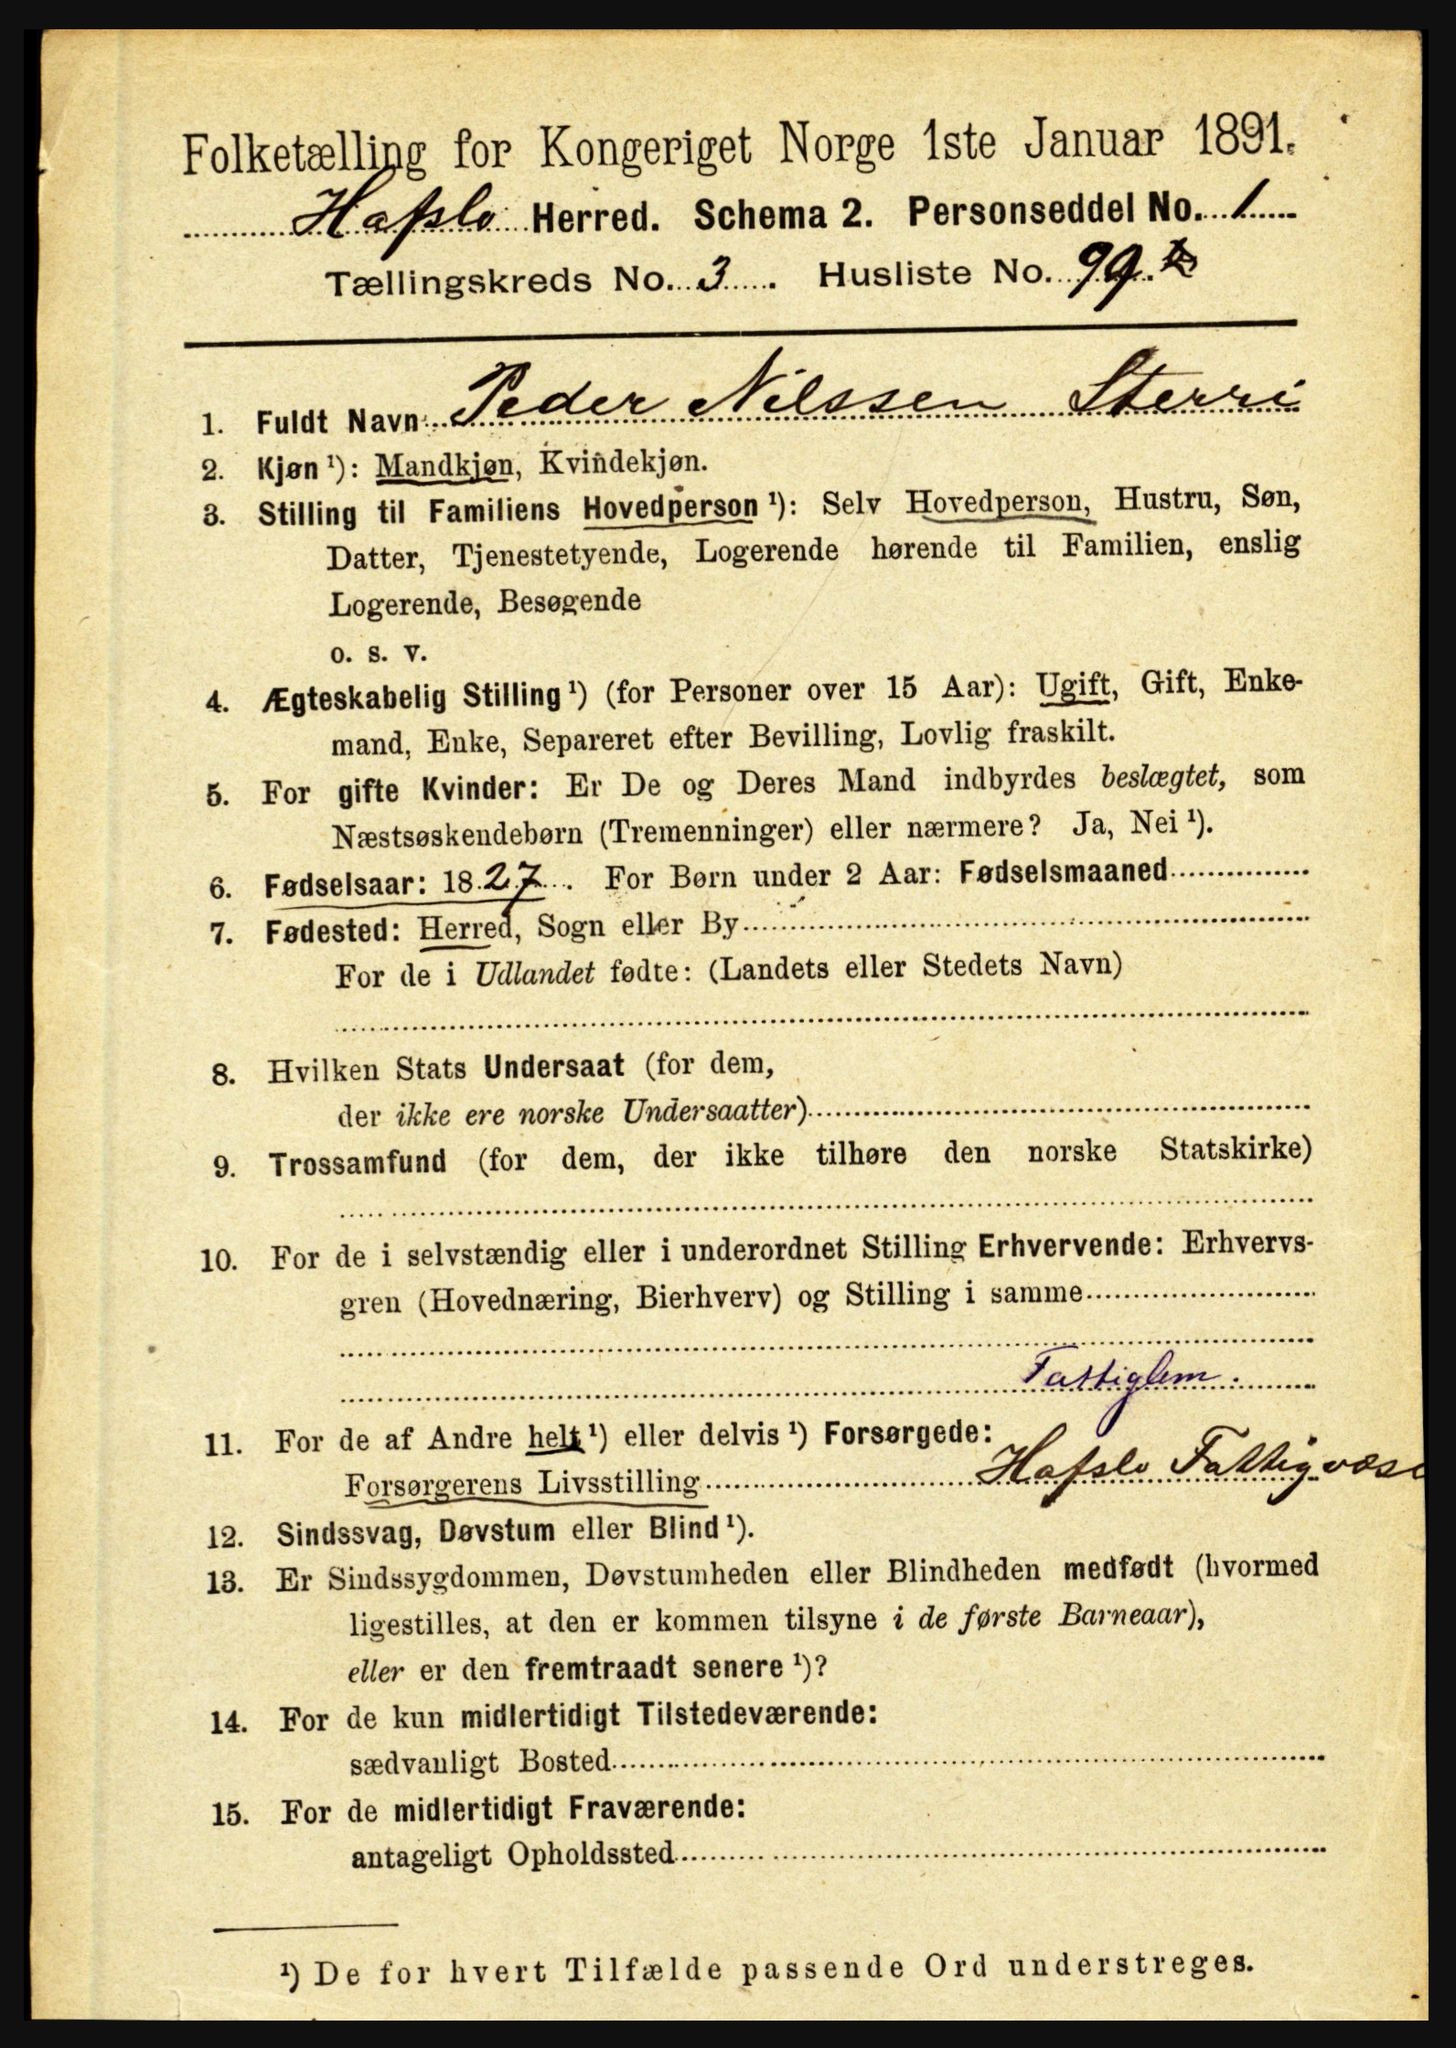 Folketælling for Kongeriget Norge 1ste Januar 1891.
Hafslo Herred. Schema 2. Personseddel No. 1
Tællingskreds No. 3. Husliste No. 99.
1. Fuldt Navn Peder Nilssen Sterri
2. Kjøn ¹): Mandkjøn, Kvindekjøn.
3. Stilling til Familiens Hovedperson ¹): Selv Hovedperson, Hustru, Søn,
Datter, Tjenestetyende, Logerende hørende til Familien, enslig
Logerende, Besøgende
o. s. v.
4. Ægteskabelig Stilling ¹) (for Personer over 15 Aar): Ugift, Gift, Enke-
mand, Enke, Separeret efter Bevilling, Lovlig fraskilt.
5. For gifte Kvinder: Er De og Deres Mand indbyrdes beslægtet, som
Næstsøskendebørn (Tremenninger) eller nærmere? Ja, Nei ¹).
6. Fødselsaar: 1827. For Børn under 2 Aar: Fødselsmaaned
7. Fødested: Herred, Sogn eller By
For de i Udlandet fødte: (Landets eller Stedets Navn)
8. Hvilken Stats Undersaat (for dem,
der ikke ere norske Undersaatter)
9. Trossamfund (for dem, der ikke tilhøre den norske Statskirke)
10. For de i selvstændig eller i underordnet Stilling Erhvervende: Erhvervs-
gren (Hovednæring, Bierhverv) og Stilling i samme
Fattiglem.
11. For de af Andre helt ¹) eller delvis ¹) Forsørgede:
Forsørgerens Livsstilling Hafslo Fattigvæse
12. Sindssvag, Døvstum eller Blind ¹).
13. Er Sindssygdommen, Døvstumheden eller Blindheden medfødt (hvormed
ligestilles, at den er kommen tilsyne i de første Barneaar),
eller er den fremtraadt senere ¹)?
14. For de kun midlertidigt Tilstedeværende:
sædvanligt Bosted
15. For de midlertidigt Fraværende:
antageligt Opholdssted
¹) De for hvert Tilfælde passende Ord understreges.